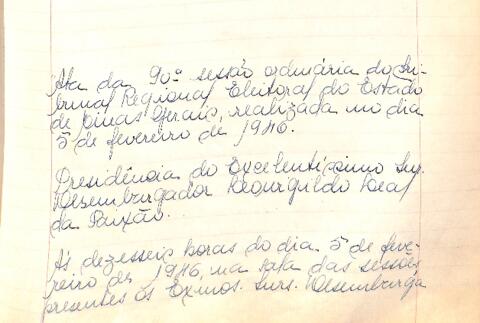 Ata da 90ª sessão ordinária do Tri-
bunal Regional Eleitoral do Estado
de Minas Gerais, realizada no dia
5 de fevereiro de 1946.
Presidência do Excelentíssimo Snr.
Desembargador Leovigildo Leal
da Paixão.
Ás dezesseis horas do dia 5 de feve-
reiro de 1946, na sala das sessões
presentes os Exmos. Snrs. Desembarga